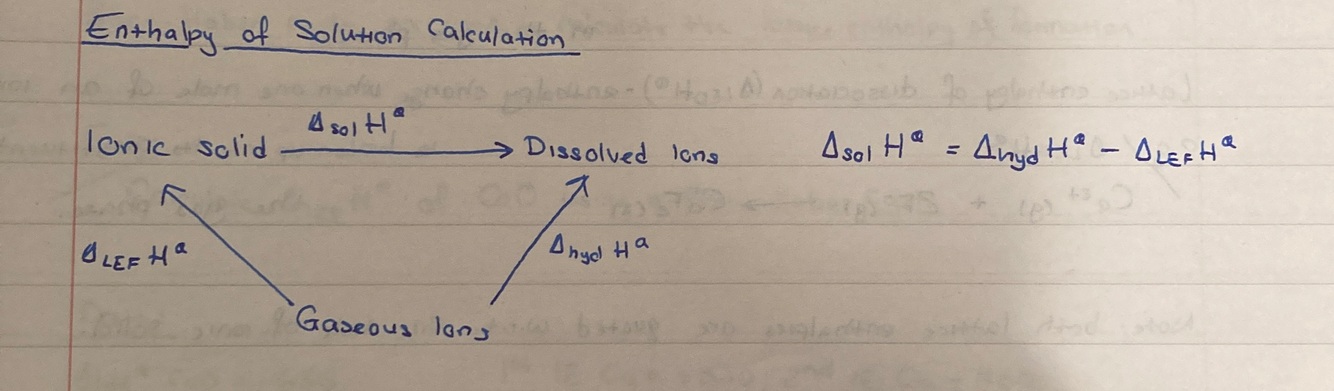 Enthalpy of Solution Calculation
Δsol Hᶱ
Ionic solid → Dissolved Ions Δsol Hᶱ = Δhyd Hᶱ − ΔLEF Hᶱ
ΔLEF Hᶱ Δhyd Hᶱ
Gaseous Ions